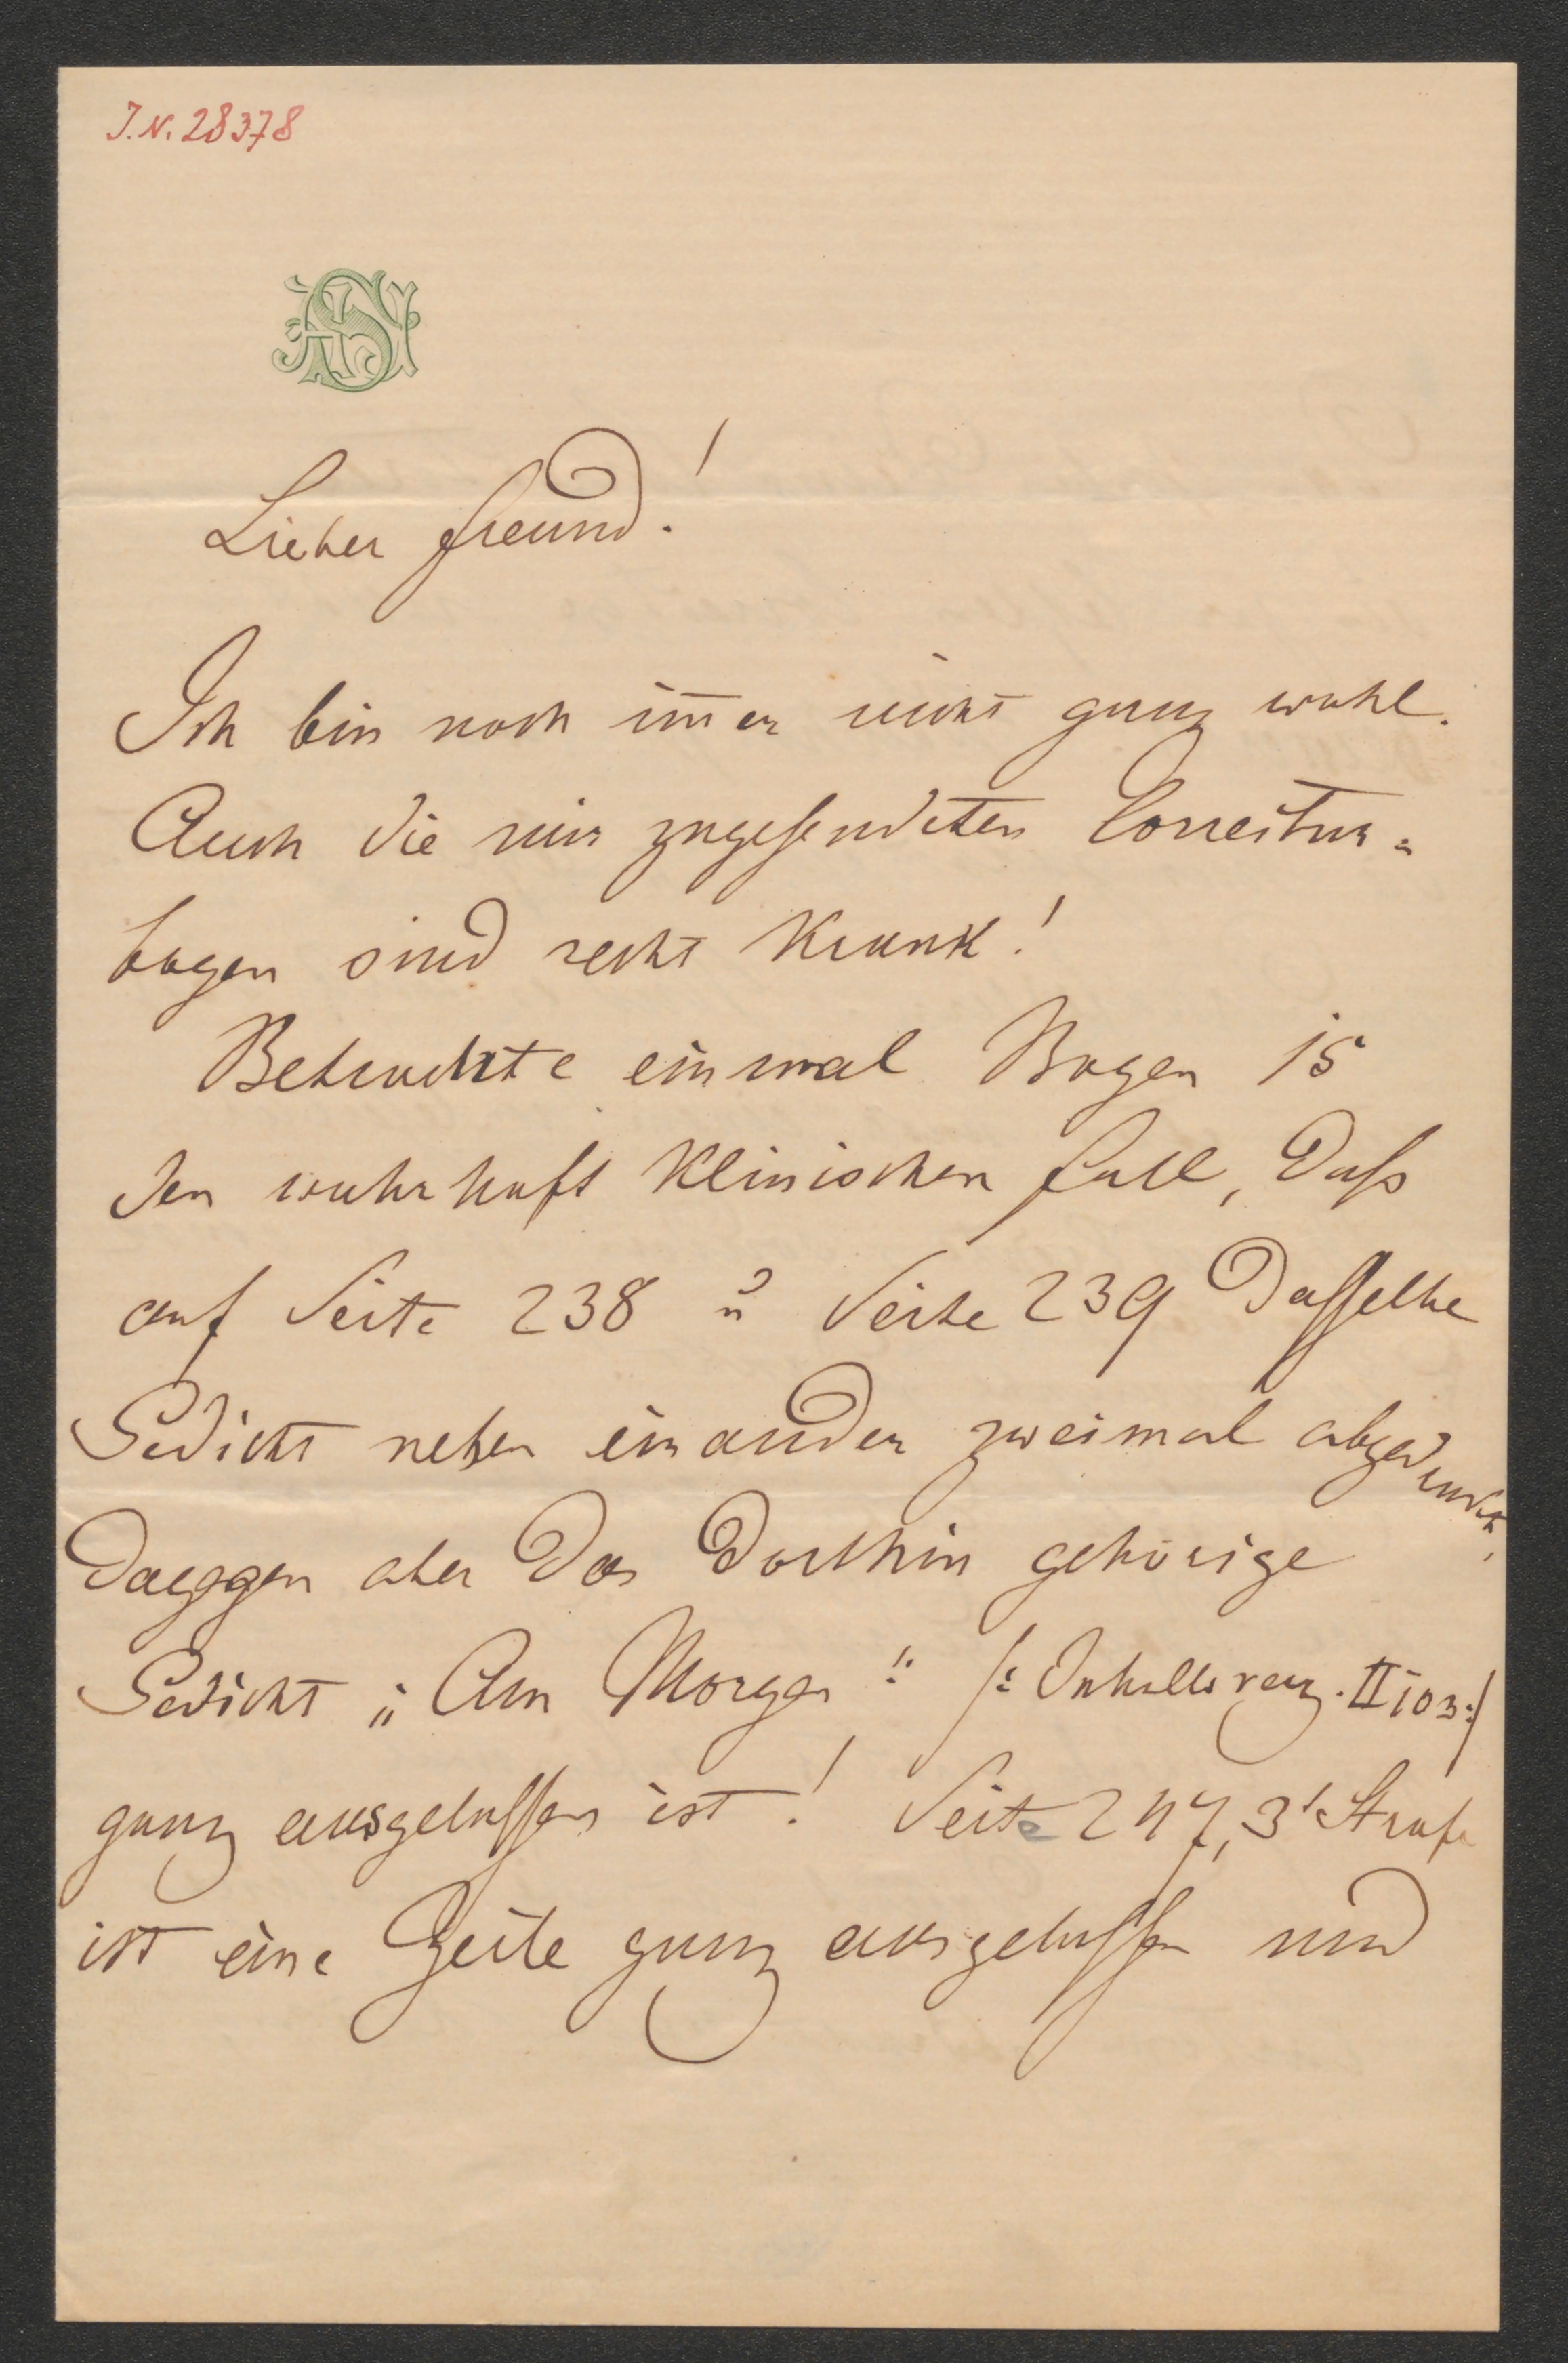 J.N. 28378
Lieber Freund!
Ich bin noch im̄er nicht ganz wohl.
Auch die mir zugesendeten Correctur-
bogen sind recht krank!
Betrachte einmal Bogen 15
den wahrhaft klinischen Fall, daß
auf Seite 238 u Seite 239 dasselbe
Gedicht neben einander zweimal abgedruckt,
dagegen aber das dorthin gehörige
Gedicht „Am Morgen" /: Inhaltsverz. II 103:/
ganz ausgelassen ist! Seite 247, 3t Strofe
ist eine Zeile ganz ausgelassen und